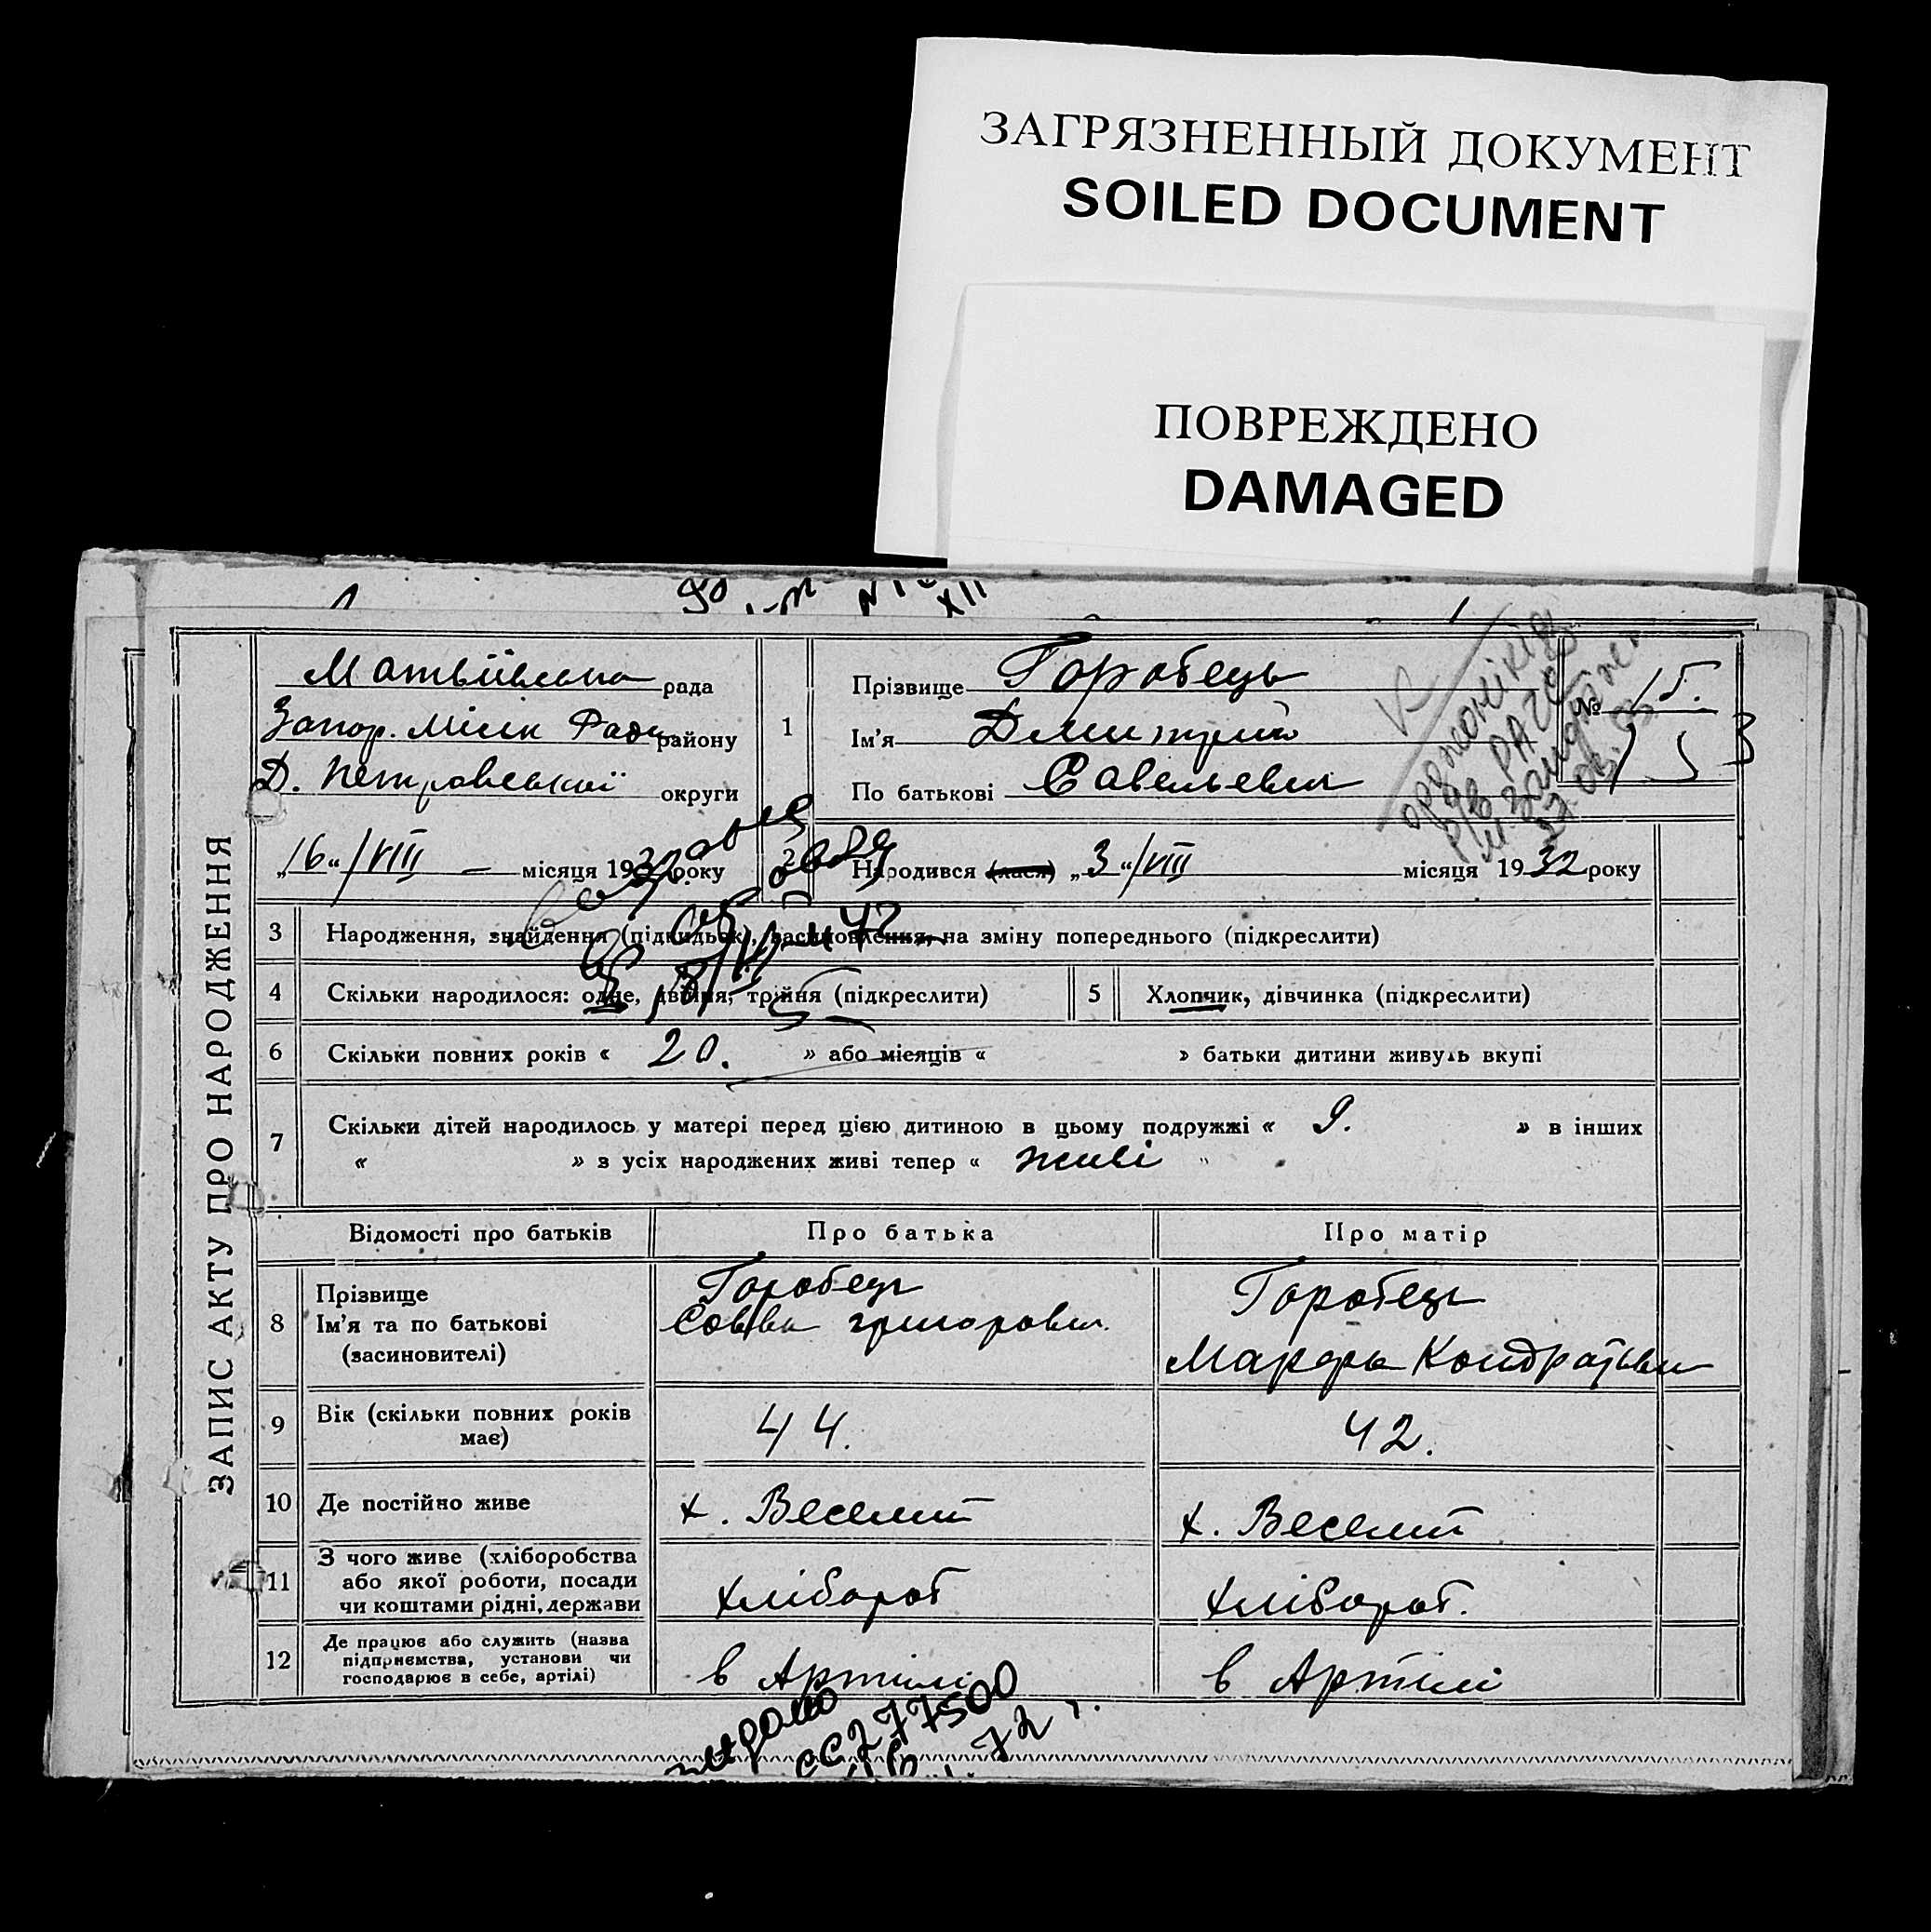 ЗАГРЯЗНЕННЫЙ ДОКУМЕНТ
SOILED DOCUMENT
ПОВРЕЖДЕНО
DAMAGED
ЗАПИС АКТУ ПРО НАРОДЖЕННЯ
Матвіївська рада
Запор. Міськ Ради району
Д. Петровської округи
1
Прізвище Горобець
Ім'я Дмитрий
По батькові Савельевич
№ 15.
„16“/VIII — місяця 1932 року
2
Народився (лася) „3“/VIII місяця 1932 року
3 Народження, знайдення (підкидьок), засиновлення, на зміну попереднього (підкреслити)
4 Скільки народилося: одне, двійня, трійня (підкреслити)
5 Хлопчик, дівчинка (підкреслити)
6 Скільки повних років « 20. » або місяців « » батьки дитини живуть вкупі
7 Скільки дітей народилось у матері перед цією дитиною в цьому подружжі « 9. » в інших
« » з усіх народжених живі тепер « живі "
Відомості про батьків Про батька Про матір
8 Прізвище
Ім'я та по батькові
(засиновителі)
Горобець
Савва григорович
Горобець
Марфа Кондратьевн
9 Вік (скільки повних років
має)
44.
42.
10 Де постійно живе х. Веселий х. Веселий
11 З чого живе (хліборобства
або якої роботи, посади
чи коштами рідні, держави
хлібороб
хлібороб.
12 Де працює або служить (назва
підприємства, установи чи
господарює в себе, артілі)
в Артілі
в Артілі
277500
72